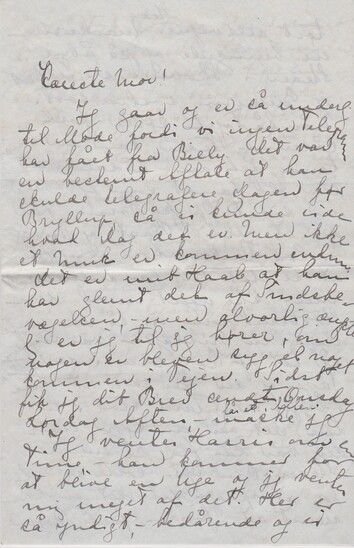 Kæreste Mor!
Jeg gaar og er så underlig
til Mode fordi vi ingen Telegram
har fået fra Billy det var
en bestemt Aftale at han
skulde telegrafere dagen før
Bryllup, så vi kunde vide
hvad dag det er. Men ikke
et muk er kommen endnu
det er mit Haab at han
har glemt det af Sindsbe
vægelsen, men alvorlig
er jeg til jeg hører, om
nogen er bleven syg el. nog
kommen i Vejen. Sidst
fik jeg dit Brev
Lordag Aften, måske jeg
Jeg venter Harris om en
time - han kommer for
at blive en Uge og jeg venter
mig meget af det. Her er
så yndigt, - bedårende og vi